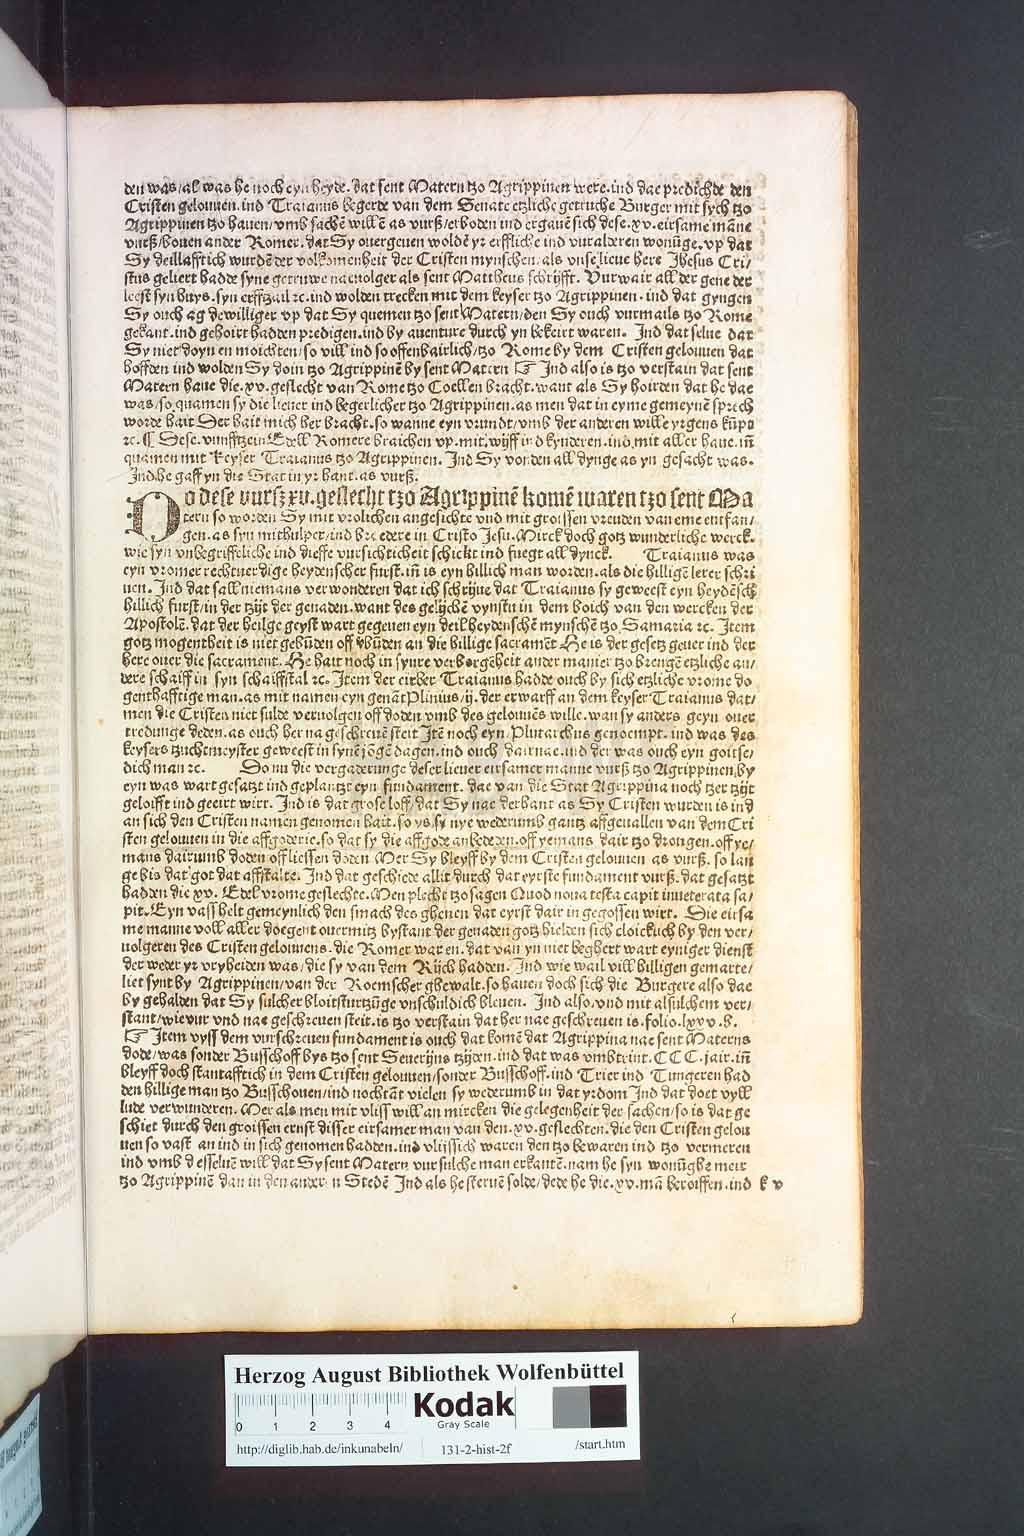 den was/al was he noch eyn heyde. dat sent Matern tzo Agrippinen were. ind dae predichde den
Cristen gelouuen. ind Traianus begerde van dem Senate etzliche getruwe Burger mit sych tzo
Agrippinen tzo hauen/vmb sachē willē as vurß/erboden ind ergauē sich dese .xv. eirsame māne
vurß/bouen ander Romer. dat Sy ouergeuen woldē yr erffliche ind vuralderen wonūge. vp dat
Sy deillafftich wurdē der volkomenheit der Cristen mynschen. als vnse lieue here Jhesus Cri/
stus geliert hadde syne getruwe nauolger als sent Mattheus schrijfft. Vurwair all der gene der
leest syn huys. syn erfftzail ⁊c. ind wolden trecken mit dem keyser tzo Agrippinen. ind dat gyngen
Sy ouch ag dewilliger vp dat Sy quemen tzo sent Matern/den Sy ouch vurmails tzo Rome
gekant. ind gehoirt hadden predigen. ind by auenture durch yn bekeirt waren. Ind dat selue dat
Sy niet doyn en moichten/so vill ind so offenbairlich/tzo Rome by dem Cristen gelouuen dat
hoffden ind wolden Sy doin tzo Agrippinē by sent Matern ☞ Ind also is tzo verstain dat sent
Matern haue die .xv. geslecht van Rome tzo Coellen bracht. want als Sy hoirden dat he dae
was/so quamen sy die lieuer ind begerlicher tzo Agrippinen. as men dat in eyme gemeynē sprech
worde hait Der hait mich her bracht. so wanne eyn vrundt/vmb der anderen wille yrgens kūpt
⁊c. ¶ Dese. vunfftzein Edell Romere braichen vp. mit. wijff ind kynderen. ind. mit aller haue. iñ
quamen mit keyser Traianus tzo Agrippinen. Ind Sy vonden all dynge as yn gesacht was.
Ind he gaff yn die Stat in yr hant. as vurß.
DO dese vursz xv. geslecht tzo Agrippinē komē waren tzo sent Ma
tern so worden Sy mit vrolichen angesichte vnd mit groissen vreuden van eme entfan/
gen. as syn mithulper/ind broedere in Cristo Jesu. Mirck doch gotz wunderliche werck.
wie syn vnbegriffeliche ind dieffe vursichticheit schickt ind fuegt all dynck. Traianus was
eyn vromer rechtuerdige heydenscher furst. iñ is eyn hillich man worden. als die hilligē lerer schri
uen. Ind dat sall niemans verwonderen dat ich schrijue dat Traianus sy geweest eyn heydēsch
hillich furst/in der tzijt der genaden. want des gelijchē vynstu in dem boich van den wercken der
Apostolē. dat der heilge geyst wart gegeuen eyn deil heydenschē mynschē tzo Samaria ⁊c. Item
gotz mogentheit is niet gebūden off vbūden an die hillige sacramēt He is der gesetz geuer ind der
here ouer die sacrament. He hait noch in synre verborgēheit ander manier tzo brengē etzliche an/
dere schaiff in syn schaiffstal ⁊c. Item der eirber Traianus hadde ouch by sich etzliche vrome do
genthafftige man. as mit namen eyn genāt Plinius/ij. der erwarff an dem keyser Traianus dat/
men die Cristen niet sulde veruolgen off doden vmb des gelouuēs wille. wan sy anders geyn ouer
tredunge deden. as ouch her na geschreuē steit Itē noch eyn/Plutarchus genoempt. ind was des
keysers tzuchtmeyster geweest in synē iōgē dagen. ind ouch dairnae. ind der was ouch eyn goitse/
dich man ⁊c. Do nu die vergaderunge deser lieuer eirsamer manne vurß tzo Agrippinen by
eyn was wart gesatzt ind geplantzt eyn fundament. dae van die Stat Agrippina noch tzer tzijt
geloifft ind geeirt wirt. Ind is dat grose loff/dat Sy nae derhant as Sy Cristen wurden is ind
an sich den Cristen namen genomen hait. so ys sy nye wederumb gantz affgeuallen van dem Cri
sten gelouuen in die affgoderie. so dat sy die affgode anbededen. off yemans dair tzo drongen. off ye/
mans dairumb doden off liessen doden Mer Sy bleyff by dem Cristen gelouuen as vurß. so lan
ge bis dat got dat affstalte. Ind dat geschiede allit durch dat eyrste fundament vurß. dat gesatzt
hadden die xv. Edel vrome geslechte. Men plecht tzo sagen Quod noua testa capit inueterata sa/
pit. Eyn vass helt gemeynlich den smach des ghenen dat eyrst dair in gegossen wirt. Die eirsa
me manne voll aller doegent ouermitz bystant der genaden gotz hielden sich cloicklich by den ver/
uolgeren des Cristen gelouuens. die Romer waren. dat van yn niet beghert wart eyniger dienst
der weder yr vryheiden was/die sy van dem Rijch hadden. Ind wie wail vill hilligen gemarte/
liet synt by Agrippinen/van der Roemscher ghewalt. so hauen doch sich die Burgere also dae
by gehalden dat Sy sulcher bloitsturtzūge vnschuldich bleuen. Ind also. vnd mit alsulchem ver/
stant/wie vur vnd nae geschreuen steit. is tzo verstain dat her nae geschreuen is. folio. lxxv. B.
☞ Item vyss dem vurschreuen fundament is ouch dat komē dat Agrippina nae sent Materns
dode/was sonder Busschoff bys tzo sent Seuerijns tzijden. ind dat was vmbtrint. CCC. jair. iñ
bleyff doch stantafftich in dem Cristen gelouuen/sonder Busschoff. ind Trier ind Tungeren had
den hillige man tzo Busschouen/ind nochtāt vielen sy wederumb in dat yrdom Ind dat doet vyll
lude verwunderen. Mer als men mit vliss will an mircken die gelegenheit der sachen/so is dat ge
schiet durch den groissen ernst disser eirsamer man van den. xv. geslechten. die den Cristen gelou
uen so vast an ind in sich genomen hadden. ind vlijssich waren den tzo bewaren ind tzo vermeren
ind vmb desseluē will dat Sy sent Matern vur sulche man erkantē. nam he syn wonūghe meir
tzo Agrippinē dan in den anderen Stedē Ind als he steruē solde/dede he die .xv. mā beroiffen. ind k v
Herzog August Bibliothek Wolfenbüttel
0 1 2 3 4
Kodak
Gray Scale
http://diglib.hab.de/inkunabeln/ 131-2-hist-2f /start.htm